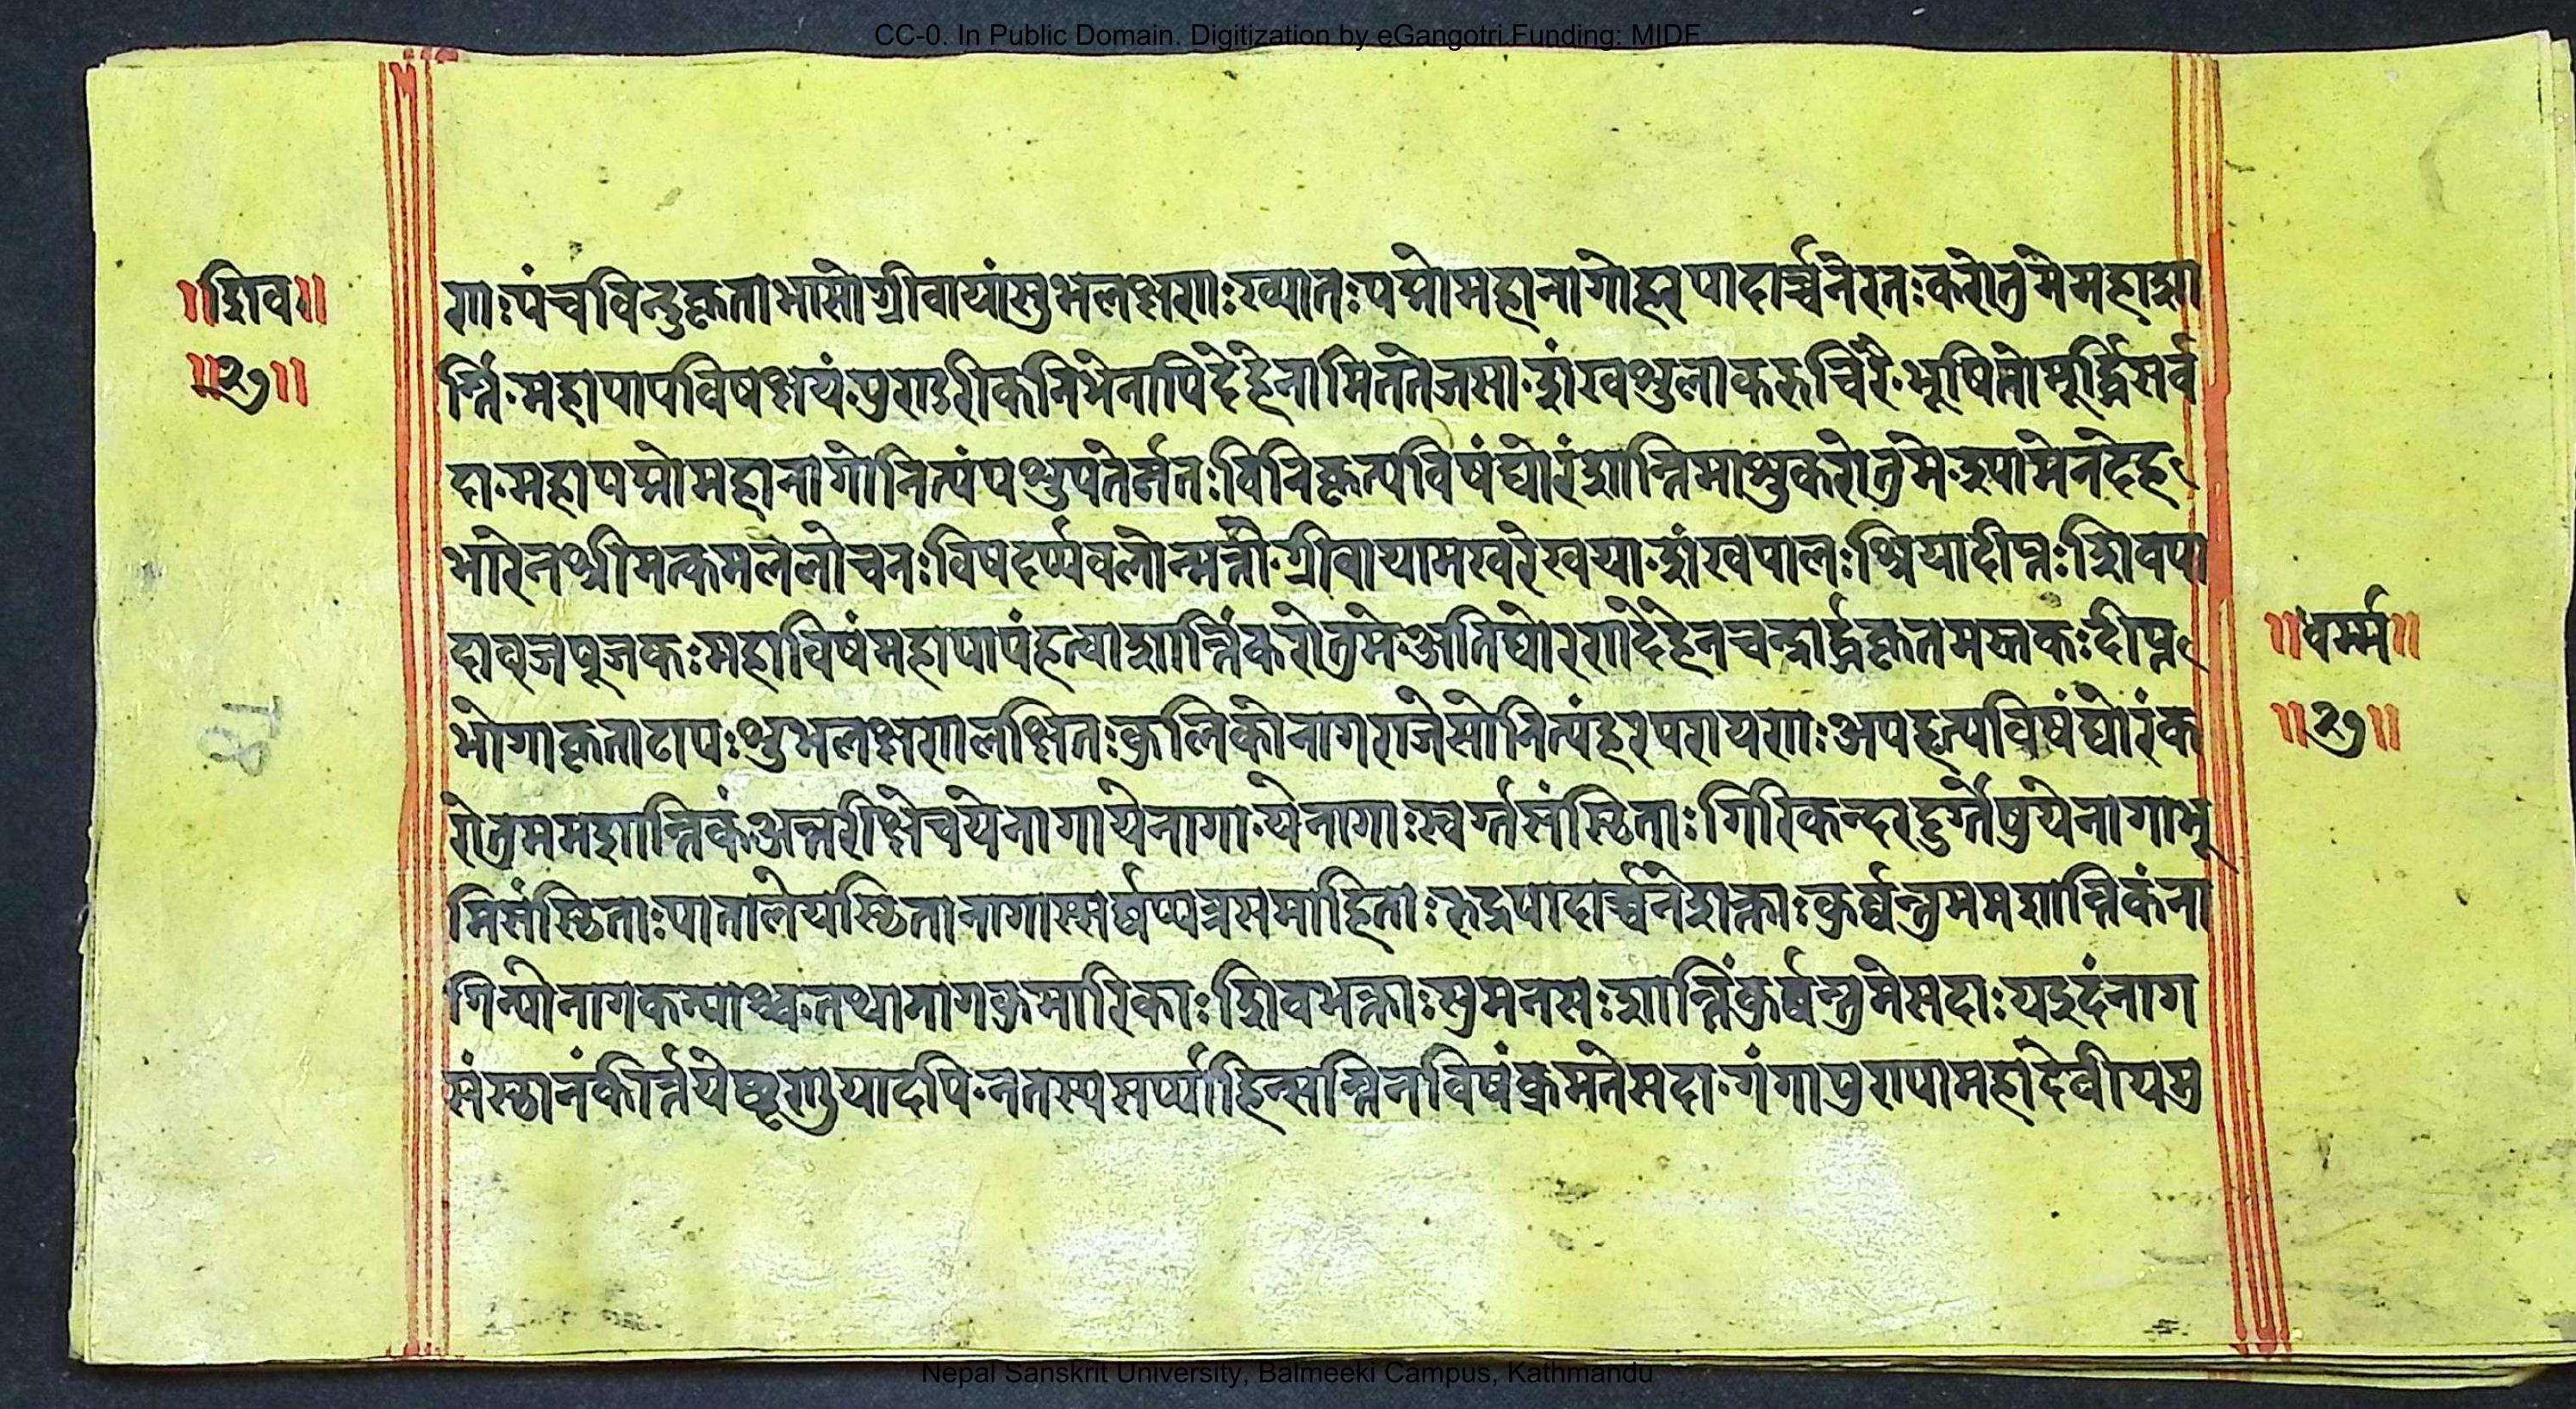 CC-0. In Public Domain. Digitization by eGangotri.Funding: MIDF
॥शिव॥
॥२७॥
णाःपंचविन्दुकृताभासोग्रीवायांसुभलक्षणाःख्यातःपद्मोमहानागोहरपादार्च्चनेरतःकरोतुमेमहाशा
न्तिं·महापापविषक्षयं·पुराडरीकनिभेनापिदेहेनामिततेजसा·शंखशुलाकरुचिरै·भूषितोमूर्द्ध्निसर्व
दा·महापद्मोमहानागोनित्यंपशुपतेर्नतःविनिकृत्यविषंघोरंशान्तिमाशुकरोतुमे·श्यामेनदेह
भारेनश्रीमत्कमललोचनःविषदर्प्पवलोन्मत्तो·ग्रीवायामेखरेखया·शंखपालःश्रियादीप्तःशिवपा
दाव्जपूजकःमहाविषंमहापापंहत्वाशान्तिंकरोतुमेअतिघोरणदेहेनचन्द्रार्द्धकृतमस्तकःदीप्त
भोगाकृताटापःशुभलक्षणलक्षितःकुलिकोनागराजेसोनित्यंहरपरायणःअपहृत्यविषंघोरंक
रोतुममशान्तिकंअन्तरीक्षेचयेनागायेनागा·येनागाःस्वर्ग्तसंस्ठिताःगिरिकन्दरदुर्ग्तेषुयेनागाभू
मिसंस्ठिताःपातालेयस्ठितानागास्सर्व्वप्यत्रसमाहिताःरुद्रपादार्च्चनेशक्ताःकुर्व्वन्तुममशान्तिकंना
गिन्योनागकन्याश्च·तथानागकुमारिकाःशिवभक्ताःसुमनसःशान्तिंकुर्व्वन्तुमेसदाःयइदंनाग
संस्ठानंकीर्त्तयेछृणुयादपि·नतस्यसर्प्पाहिन्सन्तिनविषंक्रमतेसदा·गंगापुरापामहादेवीयमु
॥धर्म्म॥
॥२७॥
Nepal Sanskrit University, Balmeeki Campus, Kathmandu